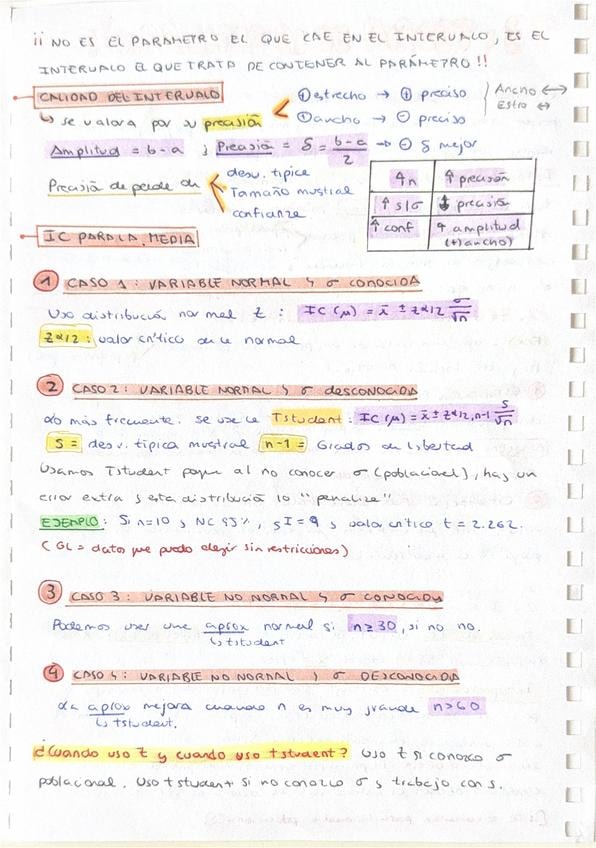 ¡¡ NO ES EL PARAMETRO EL QUE CAE EN EL INTERVALO, ES EL
INTERVALO EL QUE TRATA DE CONTENER AL PARÁMETRO !!
CALIDAD DEL INTERVALO
↳ se valora por su precisión < ⊕ estrecho → ⊕ preciso
⊕ ancho → ⊖ preciso
Ancho ↔
Estro ↔
Amplitud = b-a ; Precisión = δ = b-a/2 → ⊖ δ mejor
Precisión depende de
desv. típica
Tamaño muestral
confianza
↑n ↑ precisión
↑ s/σ ↓ precisión
↑ conf ↑ amplitud
(+) ancho)
IC PARA LA MEDIA
1 CASO 1: VARIABLE NORMAL Y σ CONOCIDA
Uso distribución normal Z : IC (μ) = x̄ ± Zα/2 σ/√n
Zα/2 : valor crítico de la normal
2 CASO 2: VARIABLE NORMAL Y σ DESCONOCIDA
Lo más frecuente. Se usa la Tstudent: IC (μ) = x̄ ± Zα/2, n-1 S/√n
S = desv. típica muestral n-1 = Grados de libertad
Usamos Tstudent porque al no conocer σ (poblacional), hay un
error extra y esta distribució lo "penaliza"
EJEMPLO: Si n=10 y NC 95%, gl = 9 y valor crítico t = 2.262.
(GL = datos que puedo elegir sin restricciones)
3 CASO 3: VARIABLE NO NORMAL Y σ CONOCIDA
Podemos usar una aprox normal si n ≥ 30, si no no.
↳ tstudent
4 CASO 4: VARIABLE NO NORMAL Y σ DESCONOCIDA
La aprox mejora cuando n es muy grande n>60
↳ tstudent.
¿Cuando uso Z y cuando uso tstudent? Uso Z si conozco σ
poblacional. Uso tstudent si no conozco σ y trabajo con s.